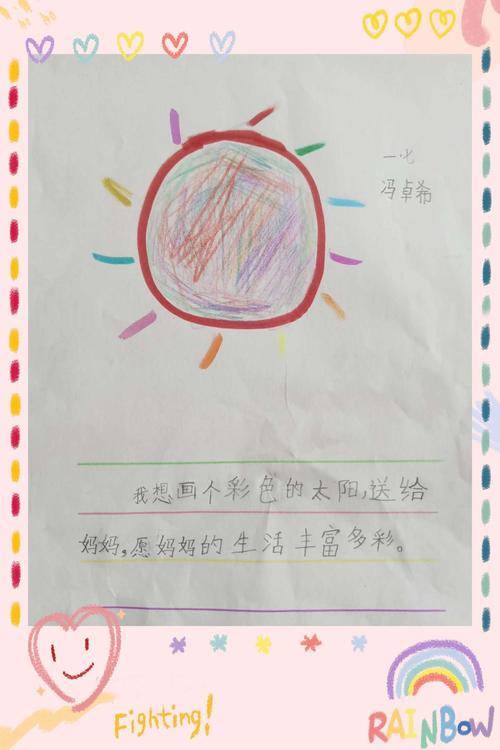 一七
冯卓希
我想画个彩色的太阳,送给
妈妈,愿妈妈的生活丰富多彩。
Fighting!
RAINBOW